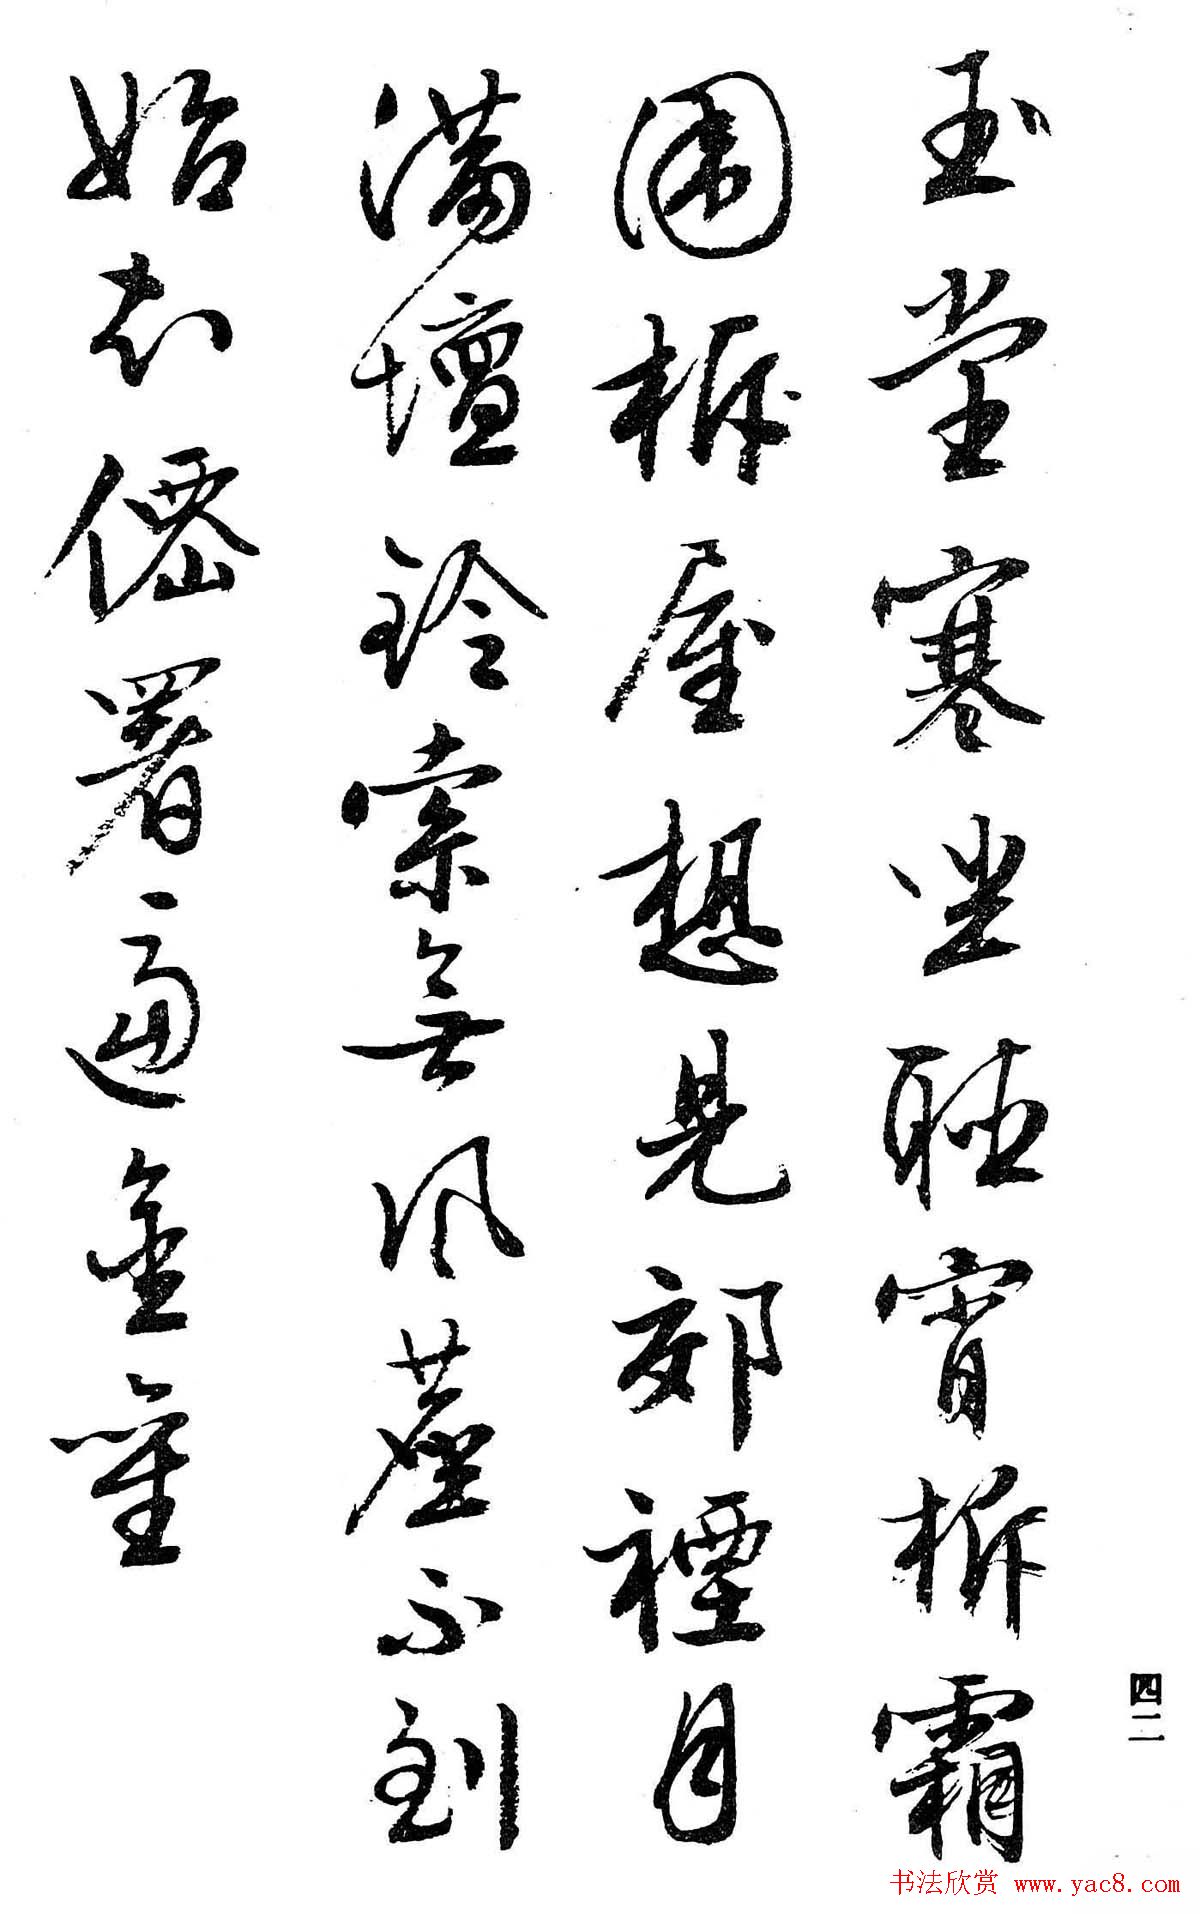 玉堂寒坐聽宵柝霜
圍屋想見郊禋月
滿壇鈴索無風塵不到
始知僊署逼金
四二
书法欣赏 www.yac8.com